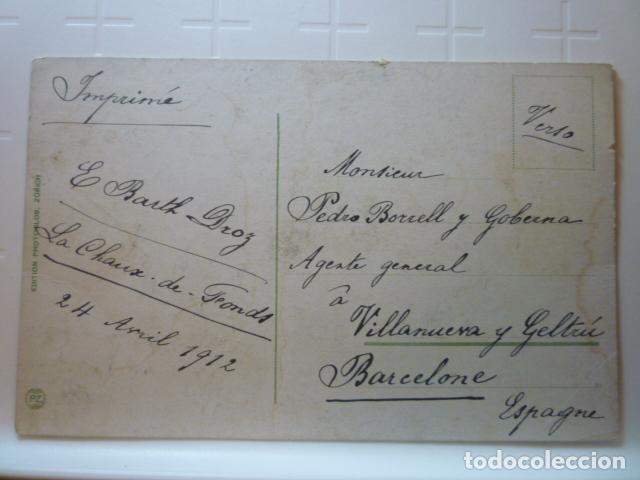 Imprimé
E Barth Droz
La Chaux-de-Fonds
24 Avril 1912
EDITION PHOTOGLOB, ZÜRICH
PZ
Verso
Monsieur
Pedro Borrell y Goberna
Agente general
à
Villanueva y Geltrú
Barcelone
Espagne
todocoleccion